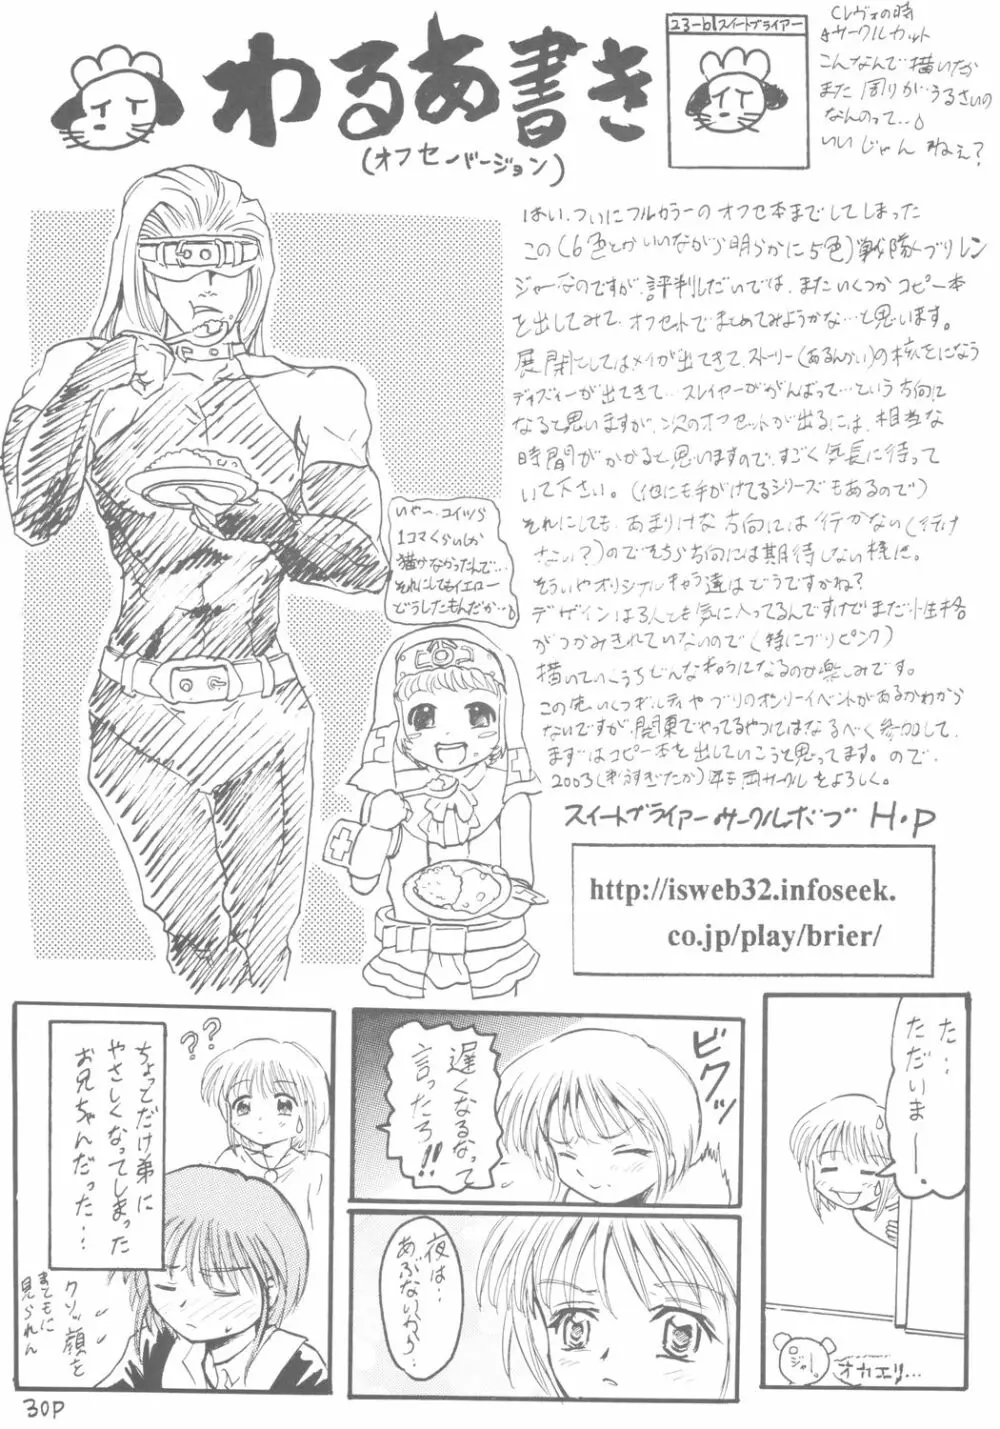 わるあ書き
(オフセバージョン)
23-b1スイートブライアー
Cレヴォの時
サークルカット
こんなんで描いたか
また周りが…うるさいの
なんのって…
いいじゃんねぇ?
はい、ついにフルカラーのオフセ本までしてしまった
この(6色とかいいながら明らかに5色)戦隊ブリレン
ジャーなのですが、評判しだいでは、またいくつかコピー本
を出してみて、オフセットでまとめてみようかな…と思います。
展開としてはメイが出てきて、ストーリー(あるんかい)の核をになう
ディズィーが出てきて…スレイヤーががんばって…という方向に
なると思いますが、次のオフセットが出るには、相当な
時間がかかると思いますので、すごく気長に待って
いて下さい。(他にも手がけてるシリーズもあるので)
それにしても、あまりHな方向には行かない(行け
ない?)のでそちら方向には期待しない様に。
そういやオリジナルキャラ達はどうですかね?
デザインは3人とも気に入ってるんですけどまだ性格
がつかみきれていないので(特にブリピンク)
描いていくうちどんなキャラになるのか楽しみです。
この先いくつギルティやブリのオンリーイベントがあるかわから
ないですが、関東でやってるやつにはなるべく参加して、
まずはコピー本を出していこうと思ってます。ので、
2003(気うすぎたか)年も両サークルをよろしく。
いやー、コイツら
1コマくらいしか
描かなかったんで…
それにしてもイエロー
どうしたもんだか…
スイートブライアー サークルボブ H・P
http://isweb32.infoseek.
co.jp/play/brier/
た…
ただいまー。
ロジャー
オカエリ…
ビクッ
遅くなるなって
言ったろ!!
夜は…
あぶないから…
??
ちょっとだけ弟に
やさしくなってしまった
お兄ちゃんだった…
クソッ顔を
まともに
見られん
30P